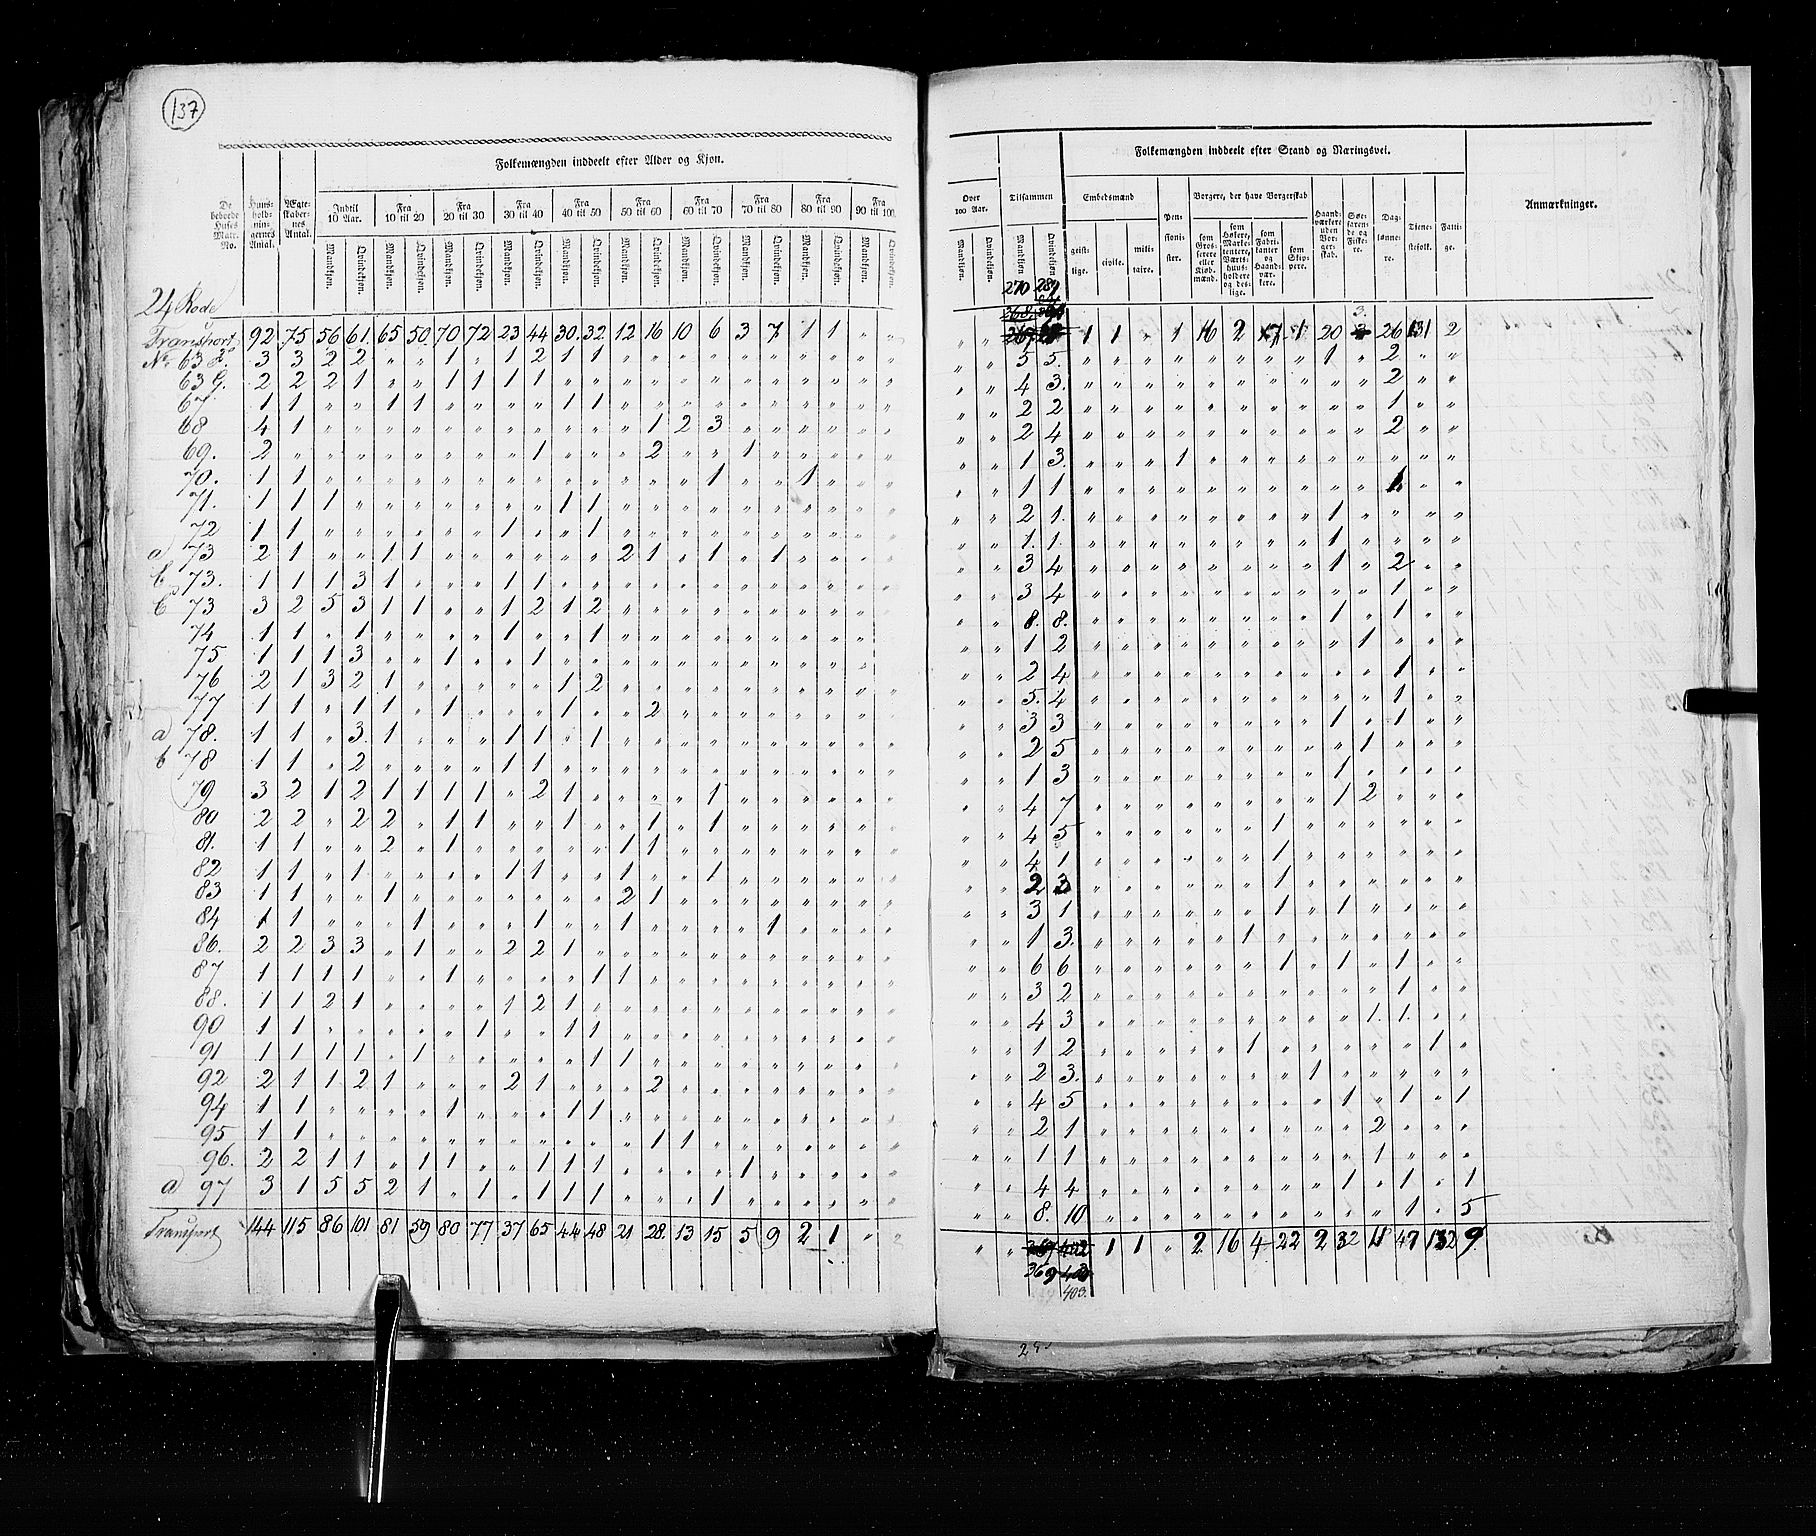 137
Folkemængden inddeelt efter Alder og Kjøn.
De beboede Huses Matr. No.
Huus-holdningernes Antal.
Ægteskabernes Antal.
Indtil 10 Aar.
Fra 10 til 20
Fra 20 til 30
Fra 30 til 40
Fra 40 til 50
Fra 50 til 60
Fra 60 til 70
Fra 70 til 80
Fra 80 til 90
Fra 90 til 100.
Mandkjøn. Qvindekjøn. Mandkjøn. Qvindekjøn. Mandkjøn. Qvindekjøn. Mandkjøn. Qvindekjøn. Mandkjøn. Qvindekjøn. Mandkjøn. Qvindekjøn. Mandkjøn. Qvindekjøn. Mandkjøn. Qvindekjøn. Mandkjøn. Qvindekjøn. Mandkjøn. Qvindekjøn.
24 Rode
Transport 92 75 56 61 65 50 70 72 23 44 30 32 12 16 10 6 3 7 1 1 " "
No. 63 F. 3 3 2 2 " " 1 " 1 2 1 1 " " " " " " " " " "
63 G. 2 2 2 1 " " 1 1 1 1 " " " " " " " " " " " "
67. 1 1 " " 1 1 " " " " 1 1 " " " " " " " " " "
68 4 1 " " " " " " " " " " " 1 2 3 " " " " " "
69. 2 " " " " " " " " 1 " " " 2 " " 1 " " " " "
70. 1 1 " " " " " " " " " " " " " 1 " " 1 " " "
71. 1 1 1 " " " " " " " 1 1 " " " " " " " " " "
72 1 1 " " " " " " 1 " " 1 " " " " " " " " " "
a 73 2 1 " " 1 1 " " " " " " 2 1 " 1 " 1 " " " "
b 73. 1 1 1 3 1 " " " 1 1 " " " " " " " " " " " "
C 73 3 2 5 3 1 1 " " 1 2 1 2 " " " " " " " " " "
74 1 1 " 1 " " " " 1 " " 1 " " " " " " " " " "
75 1 1 1 3 " " 1 " " 1 " " " " " " " " " " " "
76 2 1 3 2 1 " " " " " 1 2 " " " " " " " " " "
77 1 1 " 1 1 " 1 " " " 1 " " 2 " " " " " " " "
a 78. 1 1 " 3 1 " " " 1 1 " 1 " " " " " " " " " "
b 78 1 1 " 2 " " " " 1 1 " " " " " " " " " " " "
79 3 2 1 2 1 1 1 1 " 2 1 " " " " 1 " " " " " "
80 2 2 " 2 2 " 1 1 " " 1 " " 1 " 1 " " " " " "
81. 1 1 " " 2 " 1 " " " " " 1 1 " " " " " " " "
82 1 1 " 1 " " " " 1 1 " " 1 " " 1 " " " " " "
83 1 1 " " 1 " " " " " " " 2 1 " " " " " " " "
84 1 1 " " " 1 " " " 1 " " 1 " " " " 1 " " " "
86. 2 2 3 3 " 1 " " 2 2 1 " " " " " " " " " " "
87 1 1 1 1 " " 1 " " " " 1 1 " " " " " " " " "
88. 1 1 2 1 " " " " 1 2 1 " " " " " " " " " " "
90 1 1 " " " " " 1 " " 1 1 " " " " " " " " " "
91 1 1 1 1 " 1 " " " " " 1 1 " " " " " " " " "
92 2 1 1 2 1 " " " 2 1 " " " 2 " " " " " " " "
94 1 1 " " " " 1 " " " 1 1 " " " " " " " " " "
95 1 1 " " " " " " " " " " " 1 1 " " " " " " "
96. 2 2 1 1 " 1 1 " " 1 1 1 " " " " 1 " " " " "
a 97 3 1 5 5 2 1 " 1 " 1 1 1 " " " 1 " " " " " "
Transport 144 115 86 101 81 59 80 77 37 65 44 48 21 28 13 15 5 9 2 1 " "
Folkemængden inddeelt efter Stand og Næringsvei.
Over 100 Aar.
Tilsammen
Embedsmænd
Pensionister.
Borgere, der have Borgerskab
Haandværkere uden Borgerskab.
Søefarende og Fiskere.
Dagleønnere.
Tienestefolk.
Fattige.
Anmærkninger.
Mandkjøn. Qvindekjøn. Mandkjøn Qvindekjøn
geistlige. civile. militaire.
som Grosserere eller Kjøbmænd.
som Høkere, Marketentere, Værtshuusholdere og deslige.
som Fabrikanter og Haandværkere.
som Skippere.
270 289
268
3.
" " 267 1 1 " 1 16 2 17 1 20 3 26 131 2
" " 5 5. " " " " " " " " 1 " 2 " "
" " 4 3. " " " " " " " " " " 2 " "
" " 2 2 " " " " " " " " " " 1 " "
" " 2 4 " " " " " " " " " " 2 " "
" " 1 3. " " " 1 " " " " " " " " "
" " 1 1 " " " " " " " " " " 1 " "
" " 2 1. " " " " " " " " 1 " " " "
" " 1. 1. " " " " " " " " 1 " " " "
" " 3 4 " " " " " " " " 1 " 2 " "
" " 3 4 " " " " " " " " " " 1 " "
" " 8. 8. " " " " " " " " 1 " 1 " "
" " 1 2 " " " " " " " " " 1 " " "
" " 2 4 " " " " " " " " " " 1 " "
" " 5. 4 " " " " " " " " " " 1 " "
" " 3 3 " " " " " " " " 1 " 1 " "
" " 2 5 " " " " " " " " " 1 " " "
" " 1 3 " " " " " " " " 1 " " " "
" " 4 7 " " " " " " " " 1 2 " " "
" " 4 5 " " " " " " 1 " " " " " "
" " 4 1 " " " " " " 1 " " " " " "
" " 2 3 " " " " " " 1 " " " " " "
" " 3 1 " " " " " " 1 " 1 " " " "
" " 1 3. " " " " " 1 " " " " " " "
" " 6 6 " " " " " " 1 " 1 " 1 " "
" " 3 2 " " " " " " " " " " 1 " "
" " 4 3 " " " " " " " " " 1. 1. " "
" " 1 2 " " " " " 1 " " " " " 1 "
" " 2 3. " " " " " " " 1 " " " " "
" " 4 5 " " " " " " " " 1 " 1 " 1
" " 2 1 " " " " " " " " " 2 " " "
" " 1 1 " " " " " " " " " 1 " " "
" " 4 4 " " " " " " " " 1 " 1 " 1
" " 8. 10 " " " " " " " " " " 1 " 5
" " 369 402 1 1 " 2 16 4 22 2 32 11 47 132 9
369 403
403.